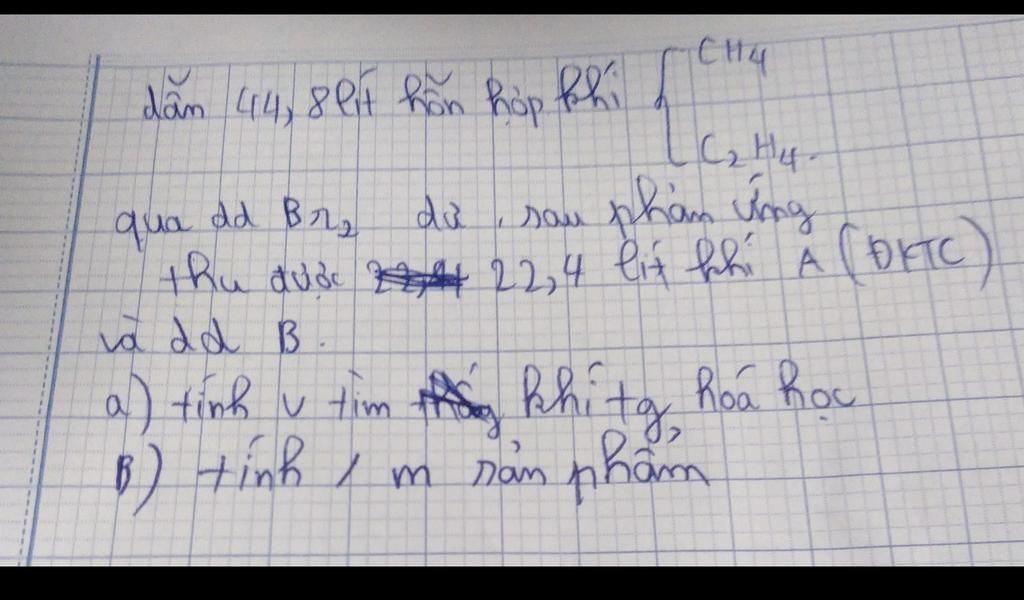 dẫn 44,8 lít hỗn hợp khí { CH4
C2H4.
qua dd Br2 dư, sau phản ứng
thu được 22,4 lít khí A (ĐKTC)
và dd B.
a) tính V tìm khí tg hoá học
B) tính m sản phẩm